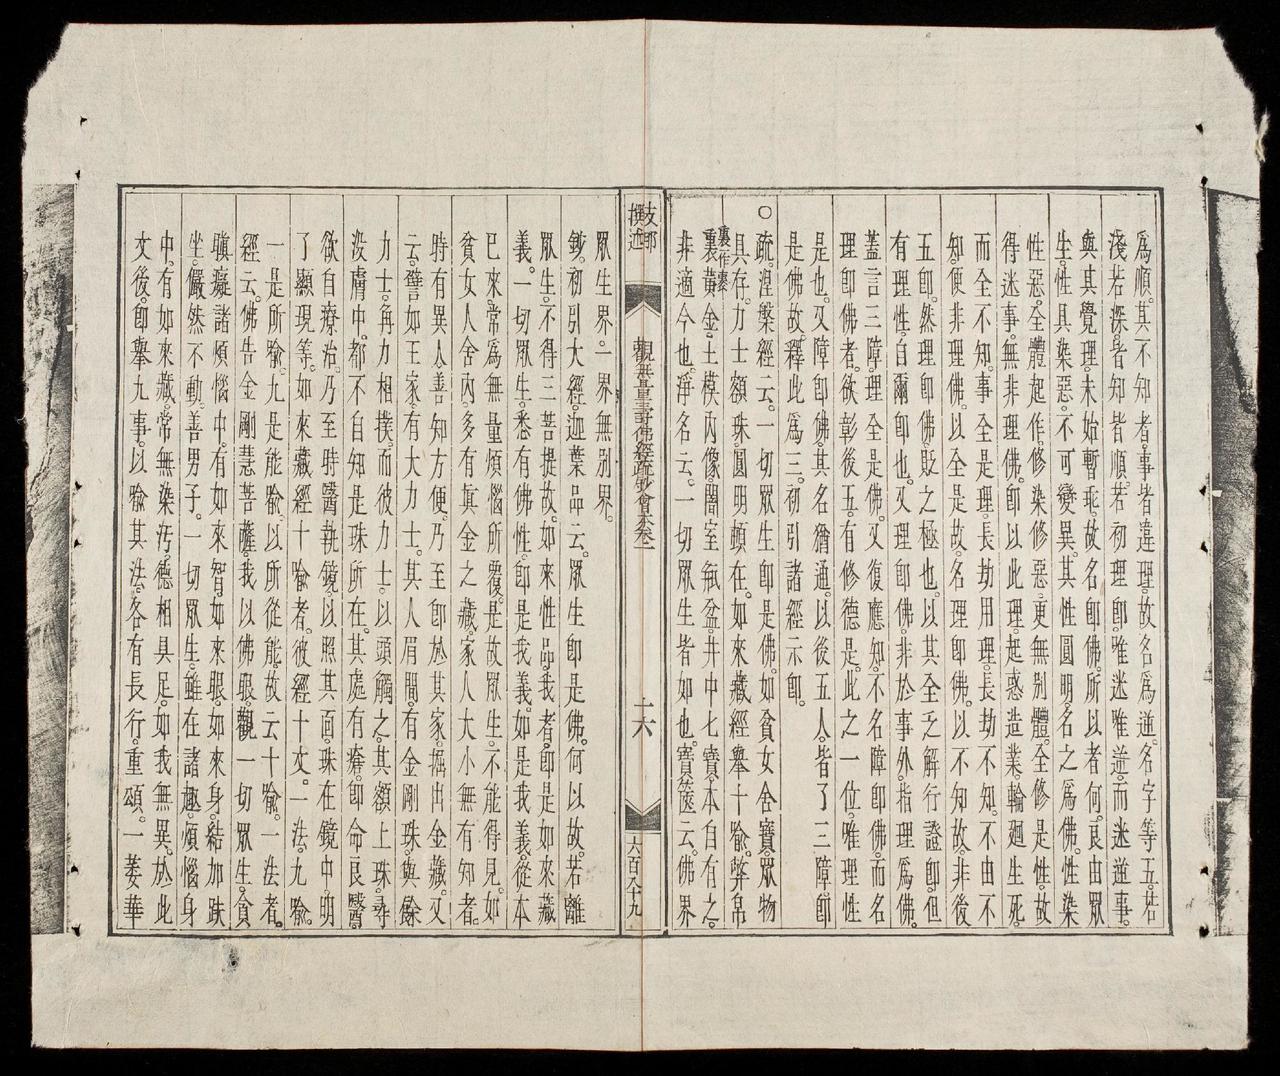 爲順。其不知者。事皆違理。故名爲逆。名字等五。若
淺若深。者知皆順。若初理卽。唯迷唯逆。而迷逆事。
與其覺理。未始暫乖。故名卽佛。所以者何。良由眾
生性具染惡。不可變異。其性圓明。名之爲佛。性染
性惡。全體起作。修染修惡。更無別體。全修是性。故
得迷事。無非理佛。卽以此理。起惑造業。輪廻生死。
而全不知。事全是理。長劫用理。長劫不知。不由不
知。便非理佛。以全是故。名理卽佛。以不知故。非後
五卽。然理卽佛。貶之極也。以其全乏解行證卽。但
有理性。自爾卽也。又理卽佛。非於事外。指理爲佛。
蓋言三障。理全是佛。又復應知。不名障卽佛。而名
理卽佛者。欲彰後五。有修德是。此之一位。唯理性
是也。又障卽佛。其名猶通。以後五人。皆了三障。卽
是佛故。釋此爲三。初引諸經示卽。
○疏。涅槃經云。一切眾生卽是佛。如貧女舍寶。眾物
具存。力士額珠。圓明頓在。如來藏經舉十喻。弊帛
裏作褁
裹黃金。土模內像。闇室缾盆。井中七寶。本自有之。
非適今也。淨名云。一切眾生皆如也。寶篋云。佛界
支那
撰述
觀無量壽佛經疏妙宗鈔會本卷二
二六
六百八十九
眾生界。一界無別界。
鈔。初引大經。迦葉品云。眾生卽是佛。何以故。若離
眾生。不得三菩提故。如來性品。我者。卽是如來藏
義。一切眾生。悉有佛性。卽是我義。如是我義。從本
已來。常爲無量煩惱所覆。是故眾生。不能得見。如
貧女人舍內。多有眞金之藏。家人大小無有知者。
時有異人。善知方便。乃至卽於其家。掘出金藏。又
云。譬如王家。有大力士。其人眉間。有金剛珠。與餘
力士。角力相撲。而彼力士。以頭觸之。其額上珠。尋
沒膚中。都不自知是珠所在。其處有瘡。卽命良醫。
欲自療治。乃至時醫執鏡。以照其面。珠在鏡中。明
了顯現等。如來藏經十喻者。彼經十文。一法。九喻。
一是所喻。九是能喻。以所從能。故云十喻。一法者。
經云。佛告金剛慧菩薩。我以佛眼。觀一切眾生。貪
瞋癡諸煩惱中。有如來智。如來眼。如來身。結加趺
坐。儼然不動。善男子。一切眾生。雖在諸趣。煩惱身
中。有如來藏。常無染汚。德相具足。如我無異。於此
文後。卽舉九事。以喻其法。各有長行。重頌。一萎華